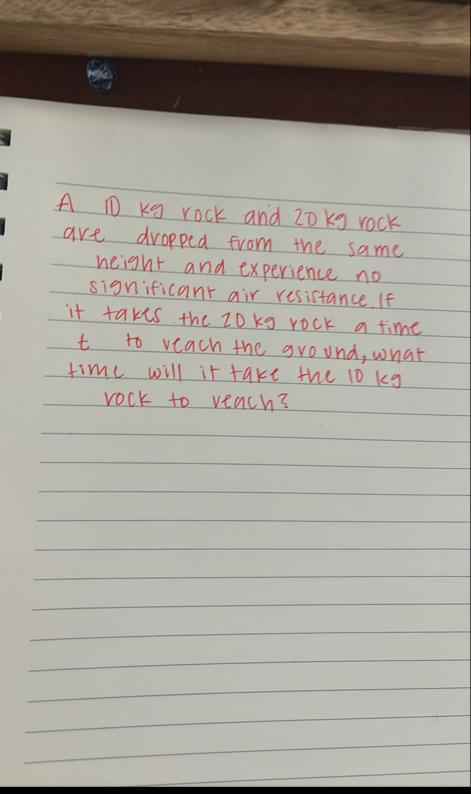 A 10 kg rock and 20 kg rock
are dropped from the same
height and experience no
significant air resistance If
it takes the 20 kg rock a time
t to reach the ground, what
time will it take the 10 kg
rock to reach?